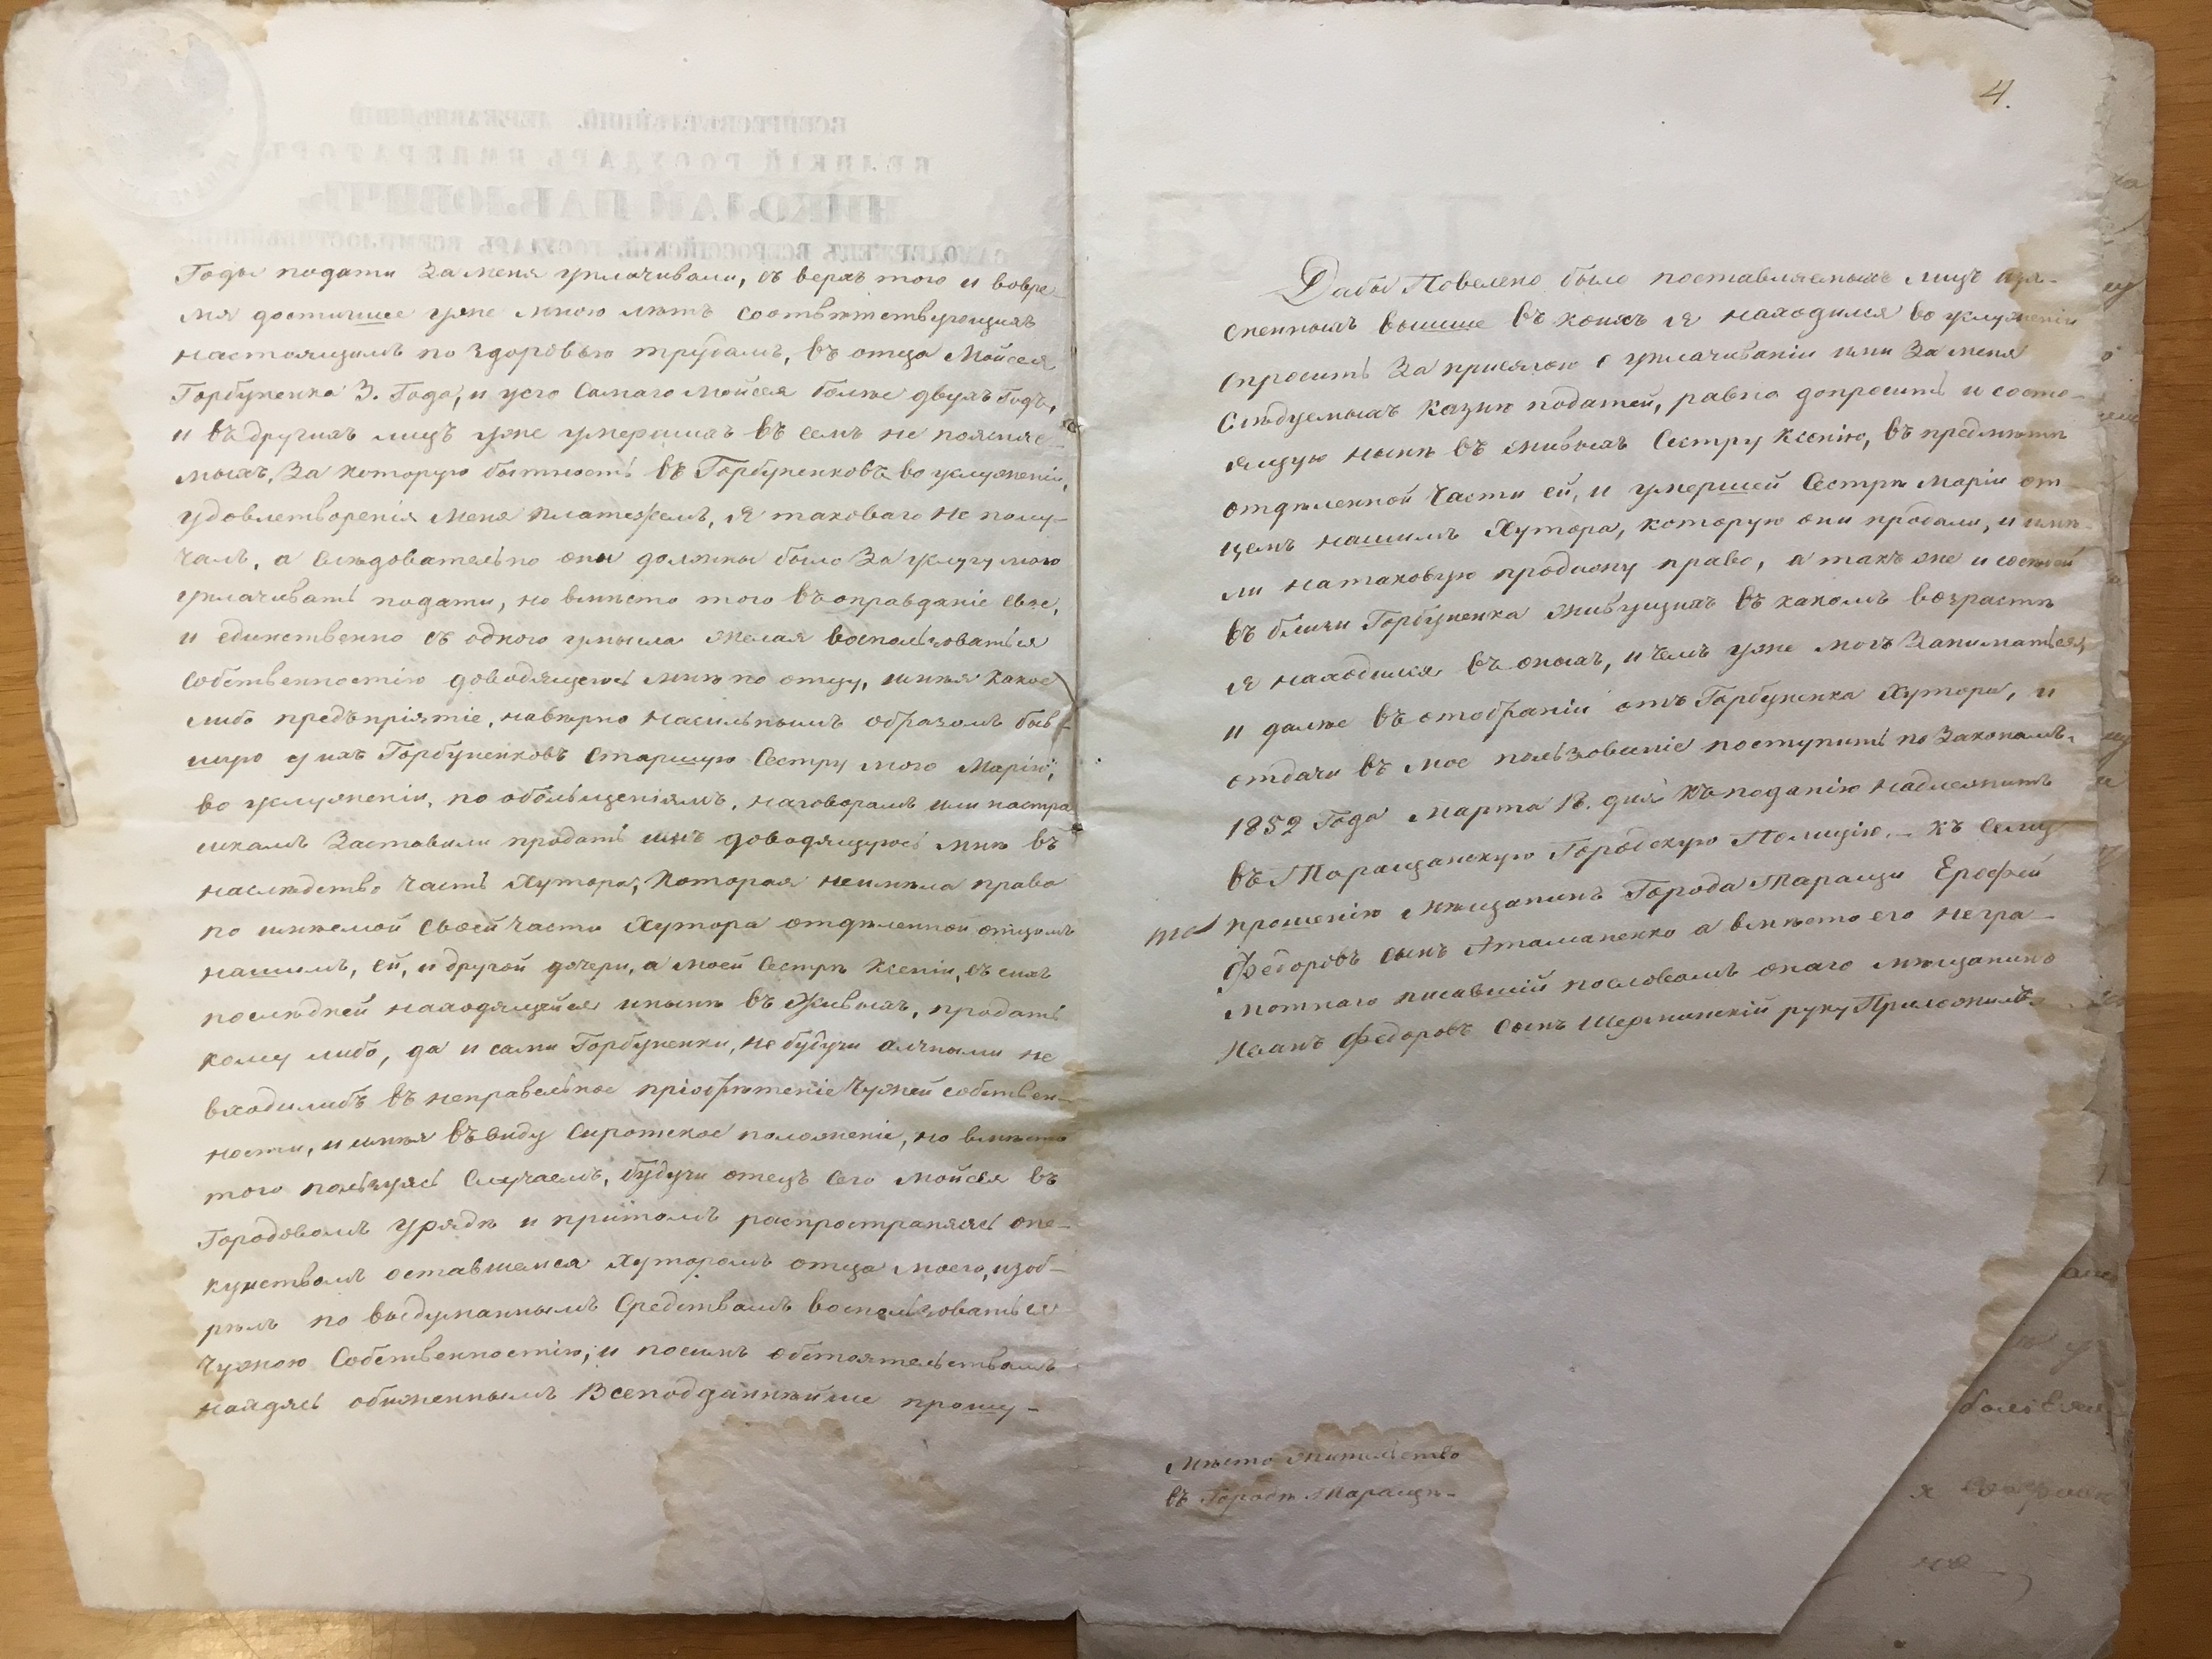 Годы подати за меня уплачивали, съ верхъ того и вовре-
мя достигшее уже мною лѣтъ соотвѣтствующихъ
настоящимъ по здоровью трудамъ, въ отца Мойсея
Горбуненка 3. Года, и усего самаго Мойсея болѣе двухъ Годъ,
и въ другихъ лицъ уже умершихъ въ семъ не поясняе-
мыхъ, За которую бытность въ Горбуненковъ во услуженіи,
удовлетворенія меня платежемъ, я таковаго не полу-
чалъ, а слѣдовательно они должны было За услугу мою
уплачивать подати, но вмѣсто того въ оправданіе свое,
и единственно съ одного умысла желая воспользоваться
собственностію доводящеюсь мнѣ по отцу, имѣя какое
либо предъпріятіе, навѣрно насильнымъ образомъ быв-
шую у ихъ Горбуненковъ старшую Сестру мою Марію,
во услуженіи, по обольщеніямъ, наговорамъ или настра
шкамъ Заставили продать имъ доводящуюсь мнѣ въ
наслѣдство часть Хутора, Которая неимѣла права
по имѣемой своей части Хутора отдѣленной отцомъ
нашимъ, ей, и другой дочери, а моей Сестрѣ Ксеніи, съ сихъ
послѣдней находящейся инынѣ въ Живыхъ, продать
кому либо, да и сами Горбуненки, не будучи алчными не
входилибъ въ неправельное пріобрѣтеніе Чужей собствен-
ности, и имѣя въ виду Сиротское положеніе, но вмѣсто
того пользуясь Случаемъ, будучи отецъ Сего Мойсея въ
Городовомъ урядѣ и притомъ распространяясь опе-
кунствомъ оставшемся Хуторомъ отца моего, изоб-
рѣлъ по выдуманнымъ Средствамъ воспользоваться
Чужою Собственностію, и посимъ обстоятельствамъ
находясь обиженнымъ Всеподданнѣйше прошу-
4.
Дабы Повелено было поставляемыхъ лицъ изъя-
сненныхъ вышше въ коихъ я находился во услуженіи
спросить За присягою о уплачиваніи ими За меня
слѣдуемыхъ Казнѣ податей, равно допросить и состо-
ящую нынѣ въ живыхъ Сестру Ксенію, въ предмѣтѣ
отдѣленной части ей, и умершей Сестрѣ Маріи от-
цемъ нашимъ Хутора, которую они продали, и имѣ-
ли натаковую продажу право, а такъ же и соседей
въ близи Горбуненка живущихъ въ какомъ возрастѣ
я находился въ оныхъ, и чемъ уже могъ Заниматься,
и далѣе въ отобраніи отъ Горбуненка Хутора, и
отдачи въ мое пользованіе поступить по Законамъ.
1852 Года Марта 18. дня Къ поданію надлежитъ
въ Таращанскую Городскую Полицію, – къ сему
прошенію мѣщанинъ Города Таращи Ерофей
Федоровъ сынъ Атаманенко а вмѣсто его негра-
мотнаго писавшій пословамъ онаго мѣщанинъ
Иванъ Федоровъ сынъ руку Приложилъ.
Мѣсто жительство
въ Городѣ Таращѣ-